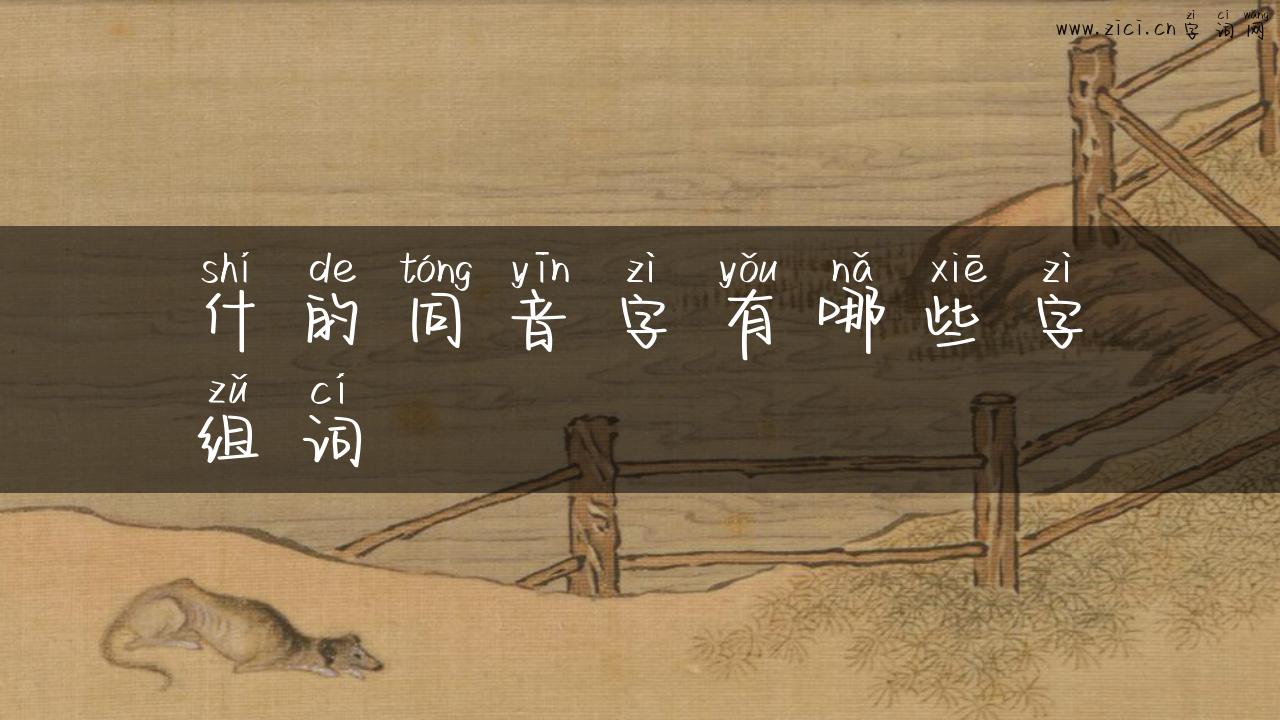 zì cí wǎng
www.zici.cn 字词网
shí de tóng yīn zì yǒu nǎ xiē zì
什的同音字有哪些字
zǔ cí
组词